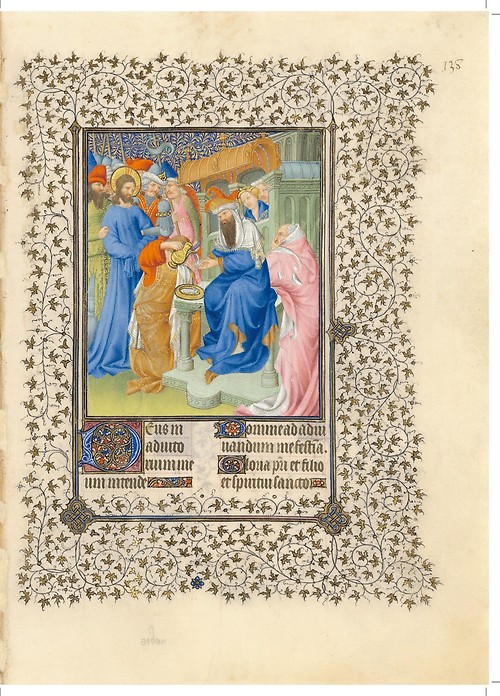 135
Deus in
adiuto
rium me
um intende
Domine ad adiu
uandum me festīa.
Gloria pr̄i et filio
et spiritui sancto